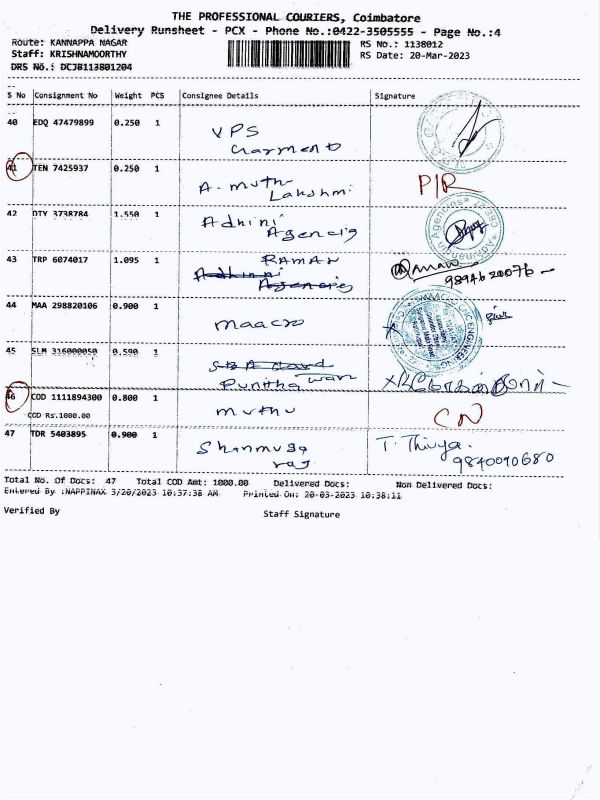 THE PROFESSIONAL COURIERS, Coimbatore
Delivery Runsheet - PCX - Phone No.:0422-3505555 - Page No.:4
Route: KANNAPPA NAGAR RS No.: 1138012
Staff: KRISHNAMOORTHY RS Date: 20-Mar-2023
DRS No.: DCJB113801204
S No Consignment No Weight PCS Consignee Details Signature
40 EDQ 47479899 0.250 1 VPS
Garment
41 TEN 7425937 0.250 1 A. Muth P/R
Lakshmi
42 DTY 3738784 1.550 1 Adhini
Agencig
43 TRP 6074017 1.095 1 RAMAN
Adhini
Agencig
9894620076
44 MAA 298820106 0.900 1 maacro
45 SLM 316000050 0.590 1 SBA Card
Punitha wan
46 COD 1111894300 0.800 1 muthu CN
COD Rs.1000.00
47 TDR 5403895 0.900 1 Shanmuga T. Thivya.
raj 9840090680
Total No. Of Docs: 47 Total COD Amt: 1000.00 Delivered Docs: Non Delivered Docs:
Entered By :NAPPINAX 3/20/2023 10:37:38 AM Printed On: 20-03-2023 10:38:11
Verified By Staff Signature